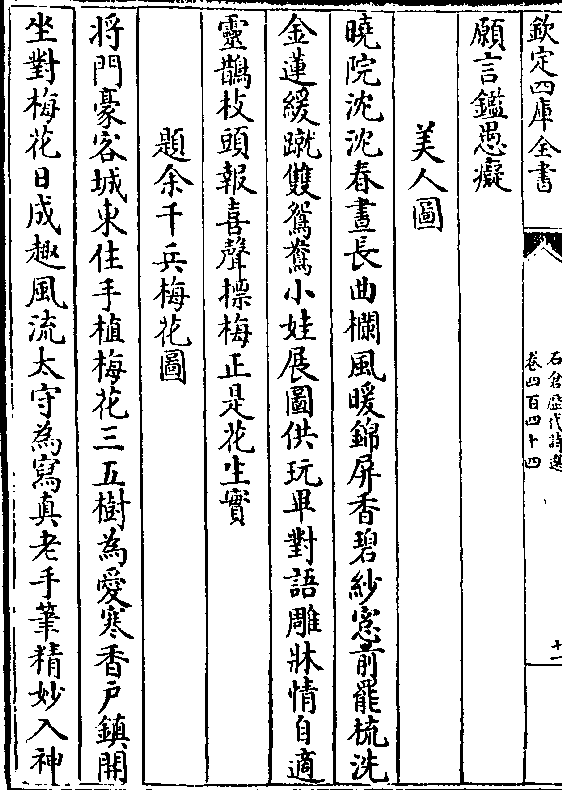 欽定四庫全書
石倉歷代詩選
卷四百四十四
十一
願言鑑愚癡
美人圖
曉院沈沈春晝長曲欄風暖錦屏香碧紗窻前罷梳洗
金蓮緩蹴雙鴛鴦小娃展圖供玩畢對語雕牀情自適
靈鵲枝頭報喜聲摽梅正是花生實
題余千兵梅花圖
將門豪客城東住手植梅花三五樹為愛寒香戶鎮開
坐對梅花日成趣風流太守為寫真老手筆精妙入神